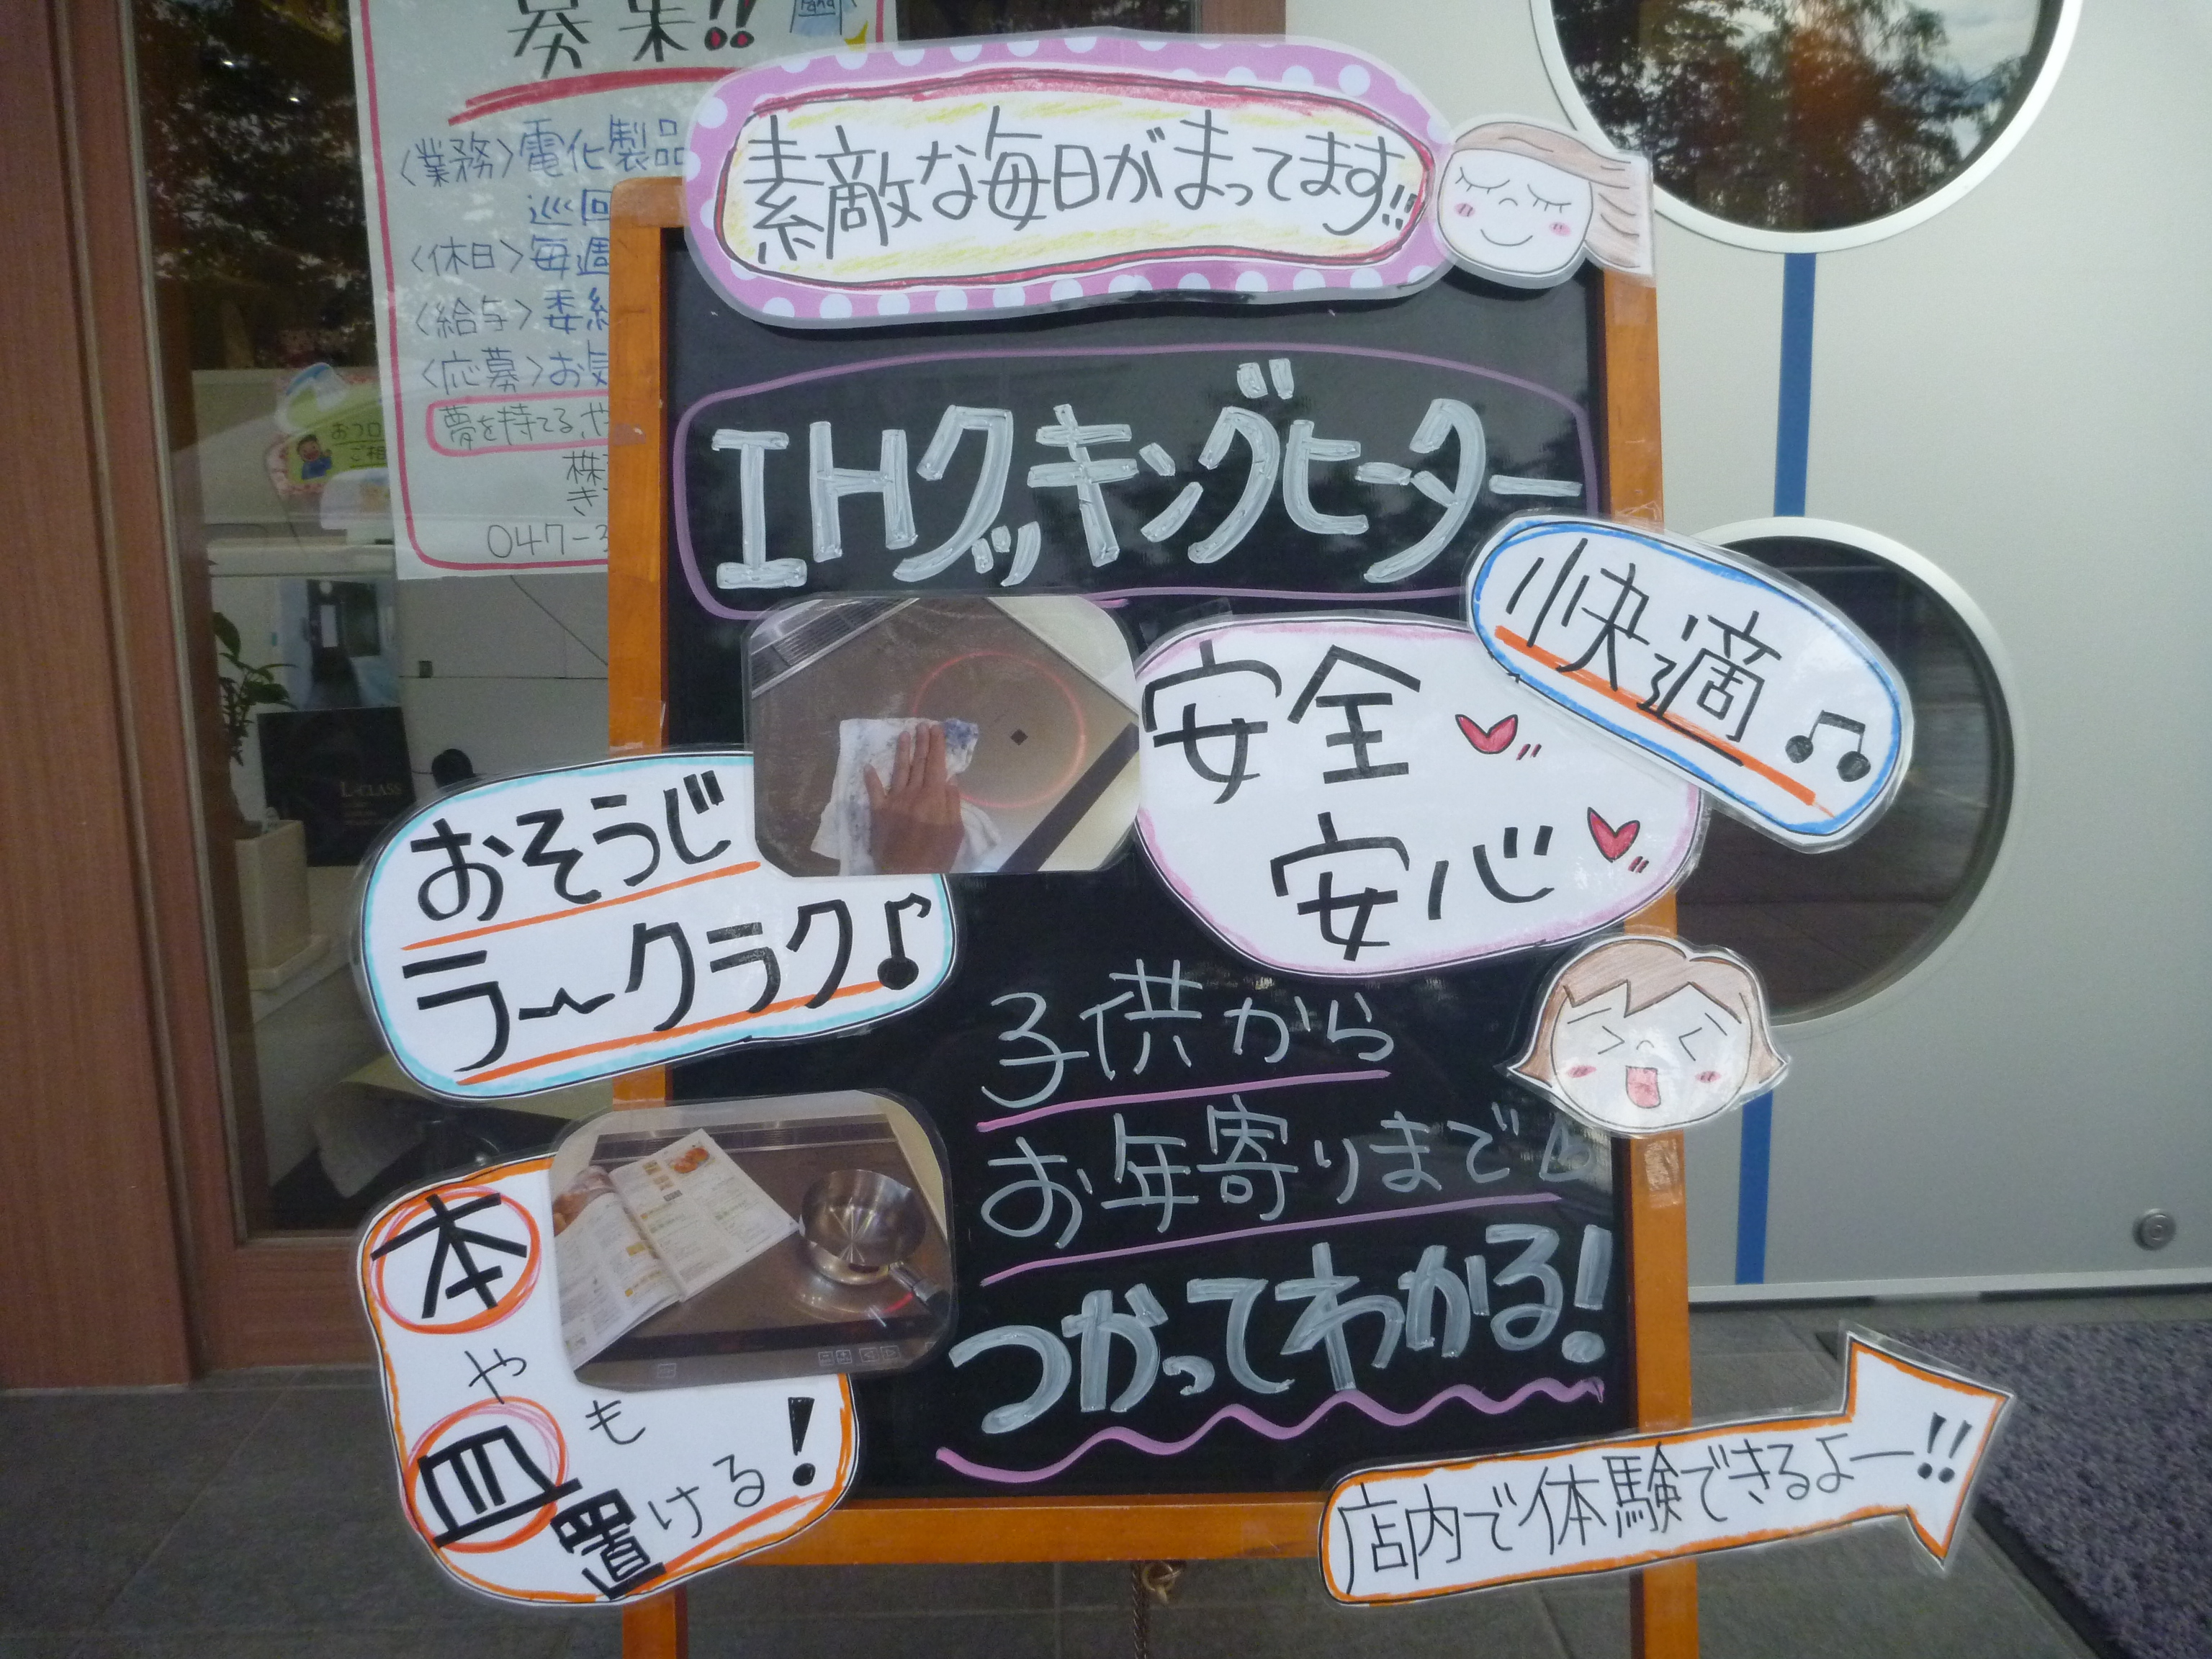 募集!!
〈業務〉電化製品
巡回
〈休日〉毎週
〈給与〉委
〈応募〉お気
夢を持てる
株
き
047-3
おフロ
ご相
L-CLASS
素敵な毎日がまってます!!
IHクッキングヒーター
快適♫
安全
安心
おそうじ
ラ〜クラク♪
子供から
お年寄りまで
つかってわかる!
本
や
皿も
置ける!
店内で体験できるよー!!